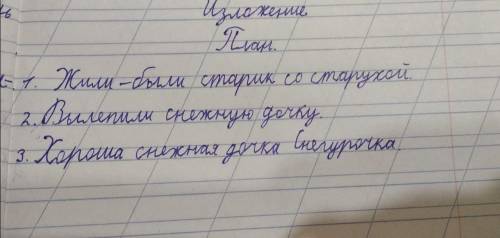 Изложение
План.
1. Жили-были старик со старухой.
2. Вылепили снежную дочку.
3. Хороша снежная дочка Снегурочка